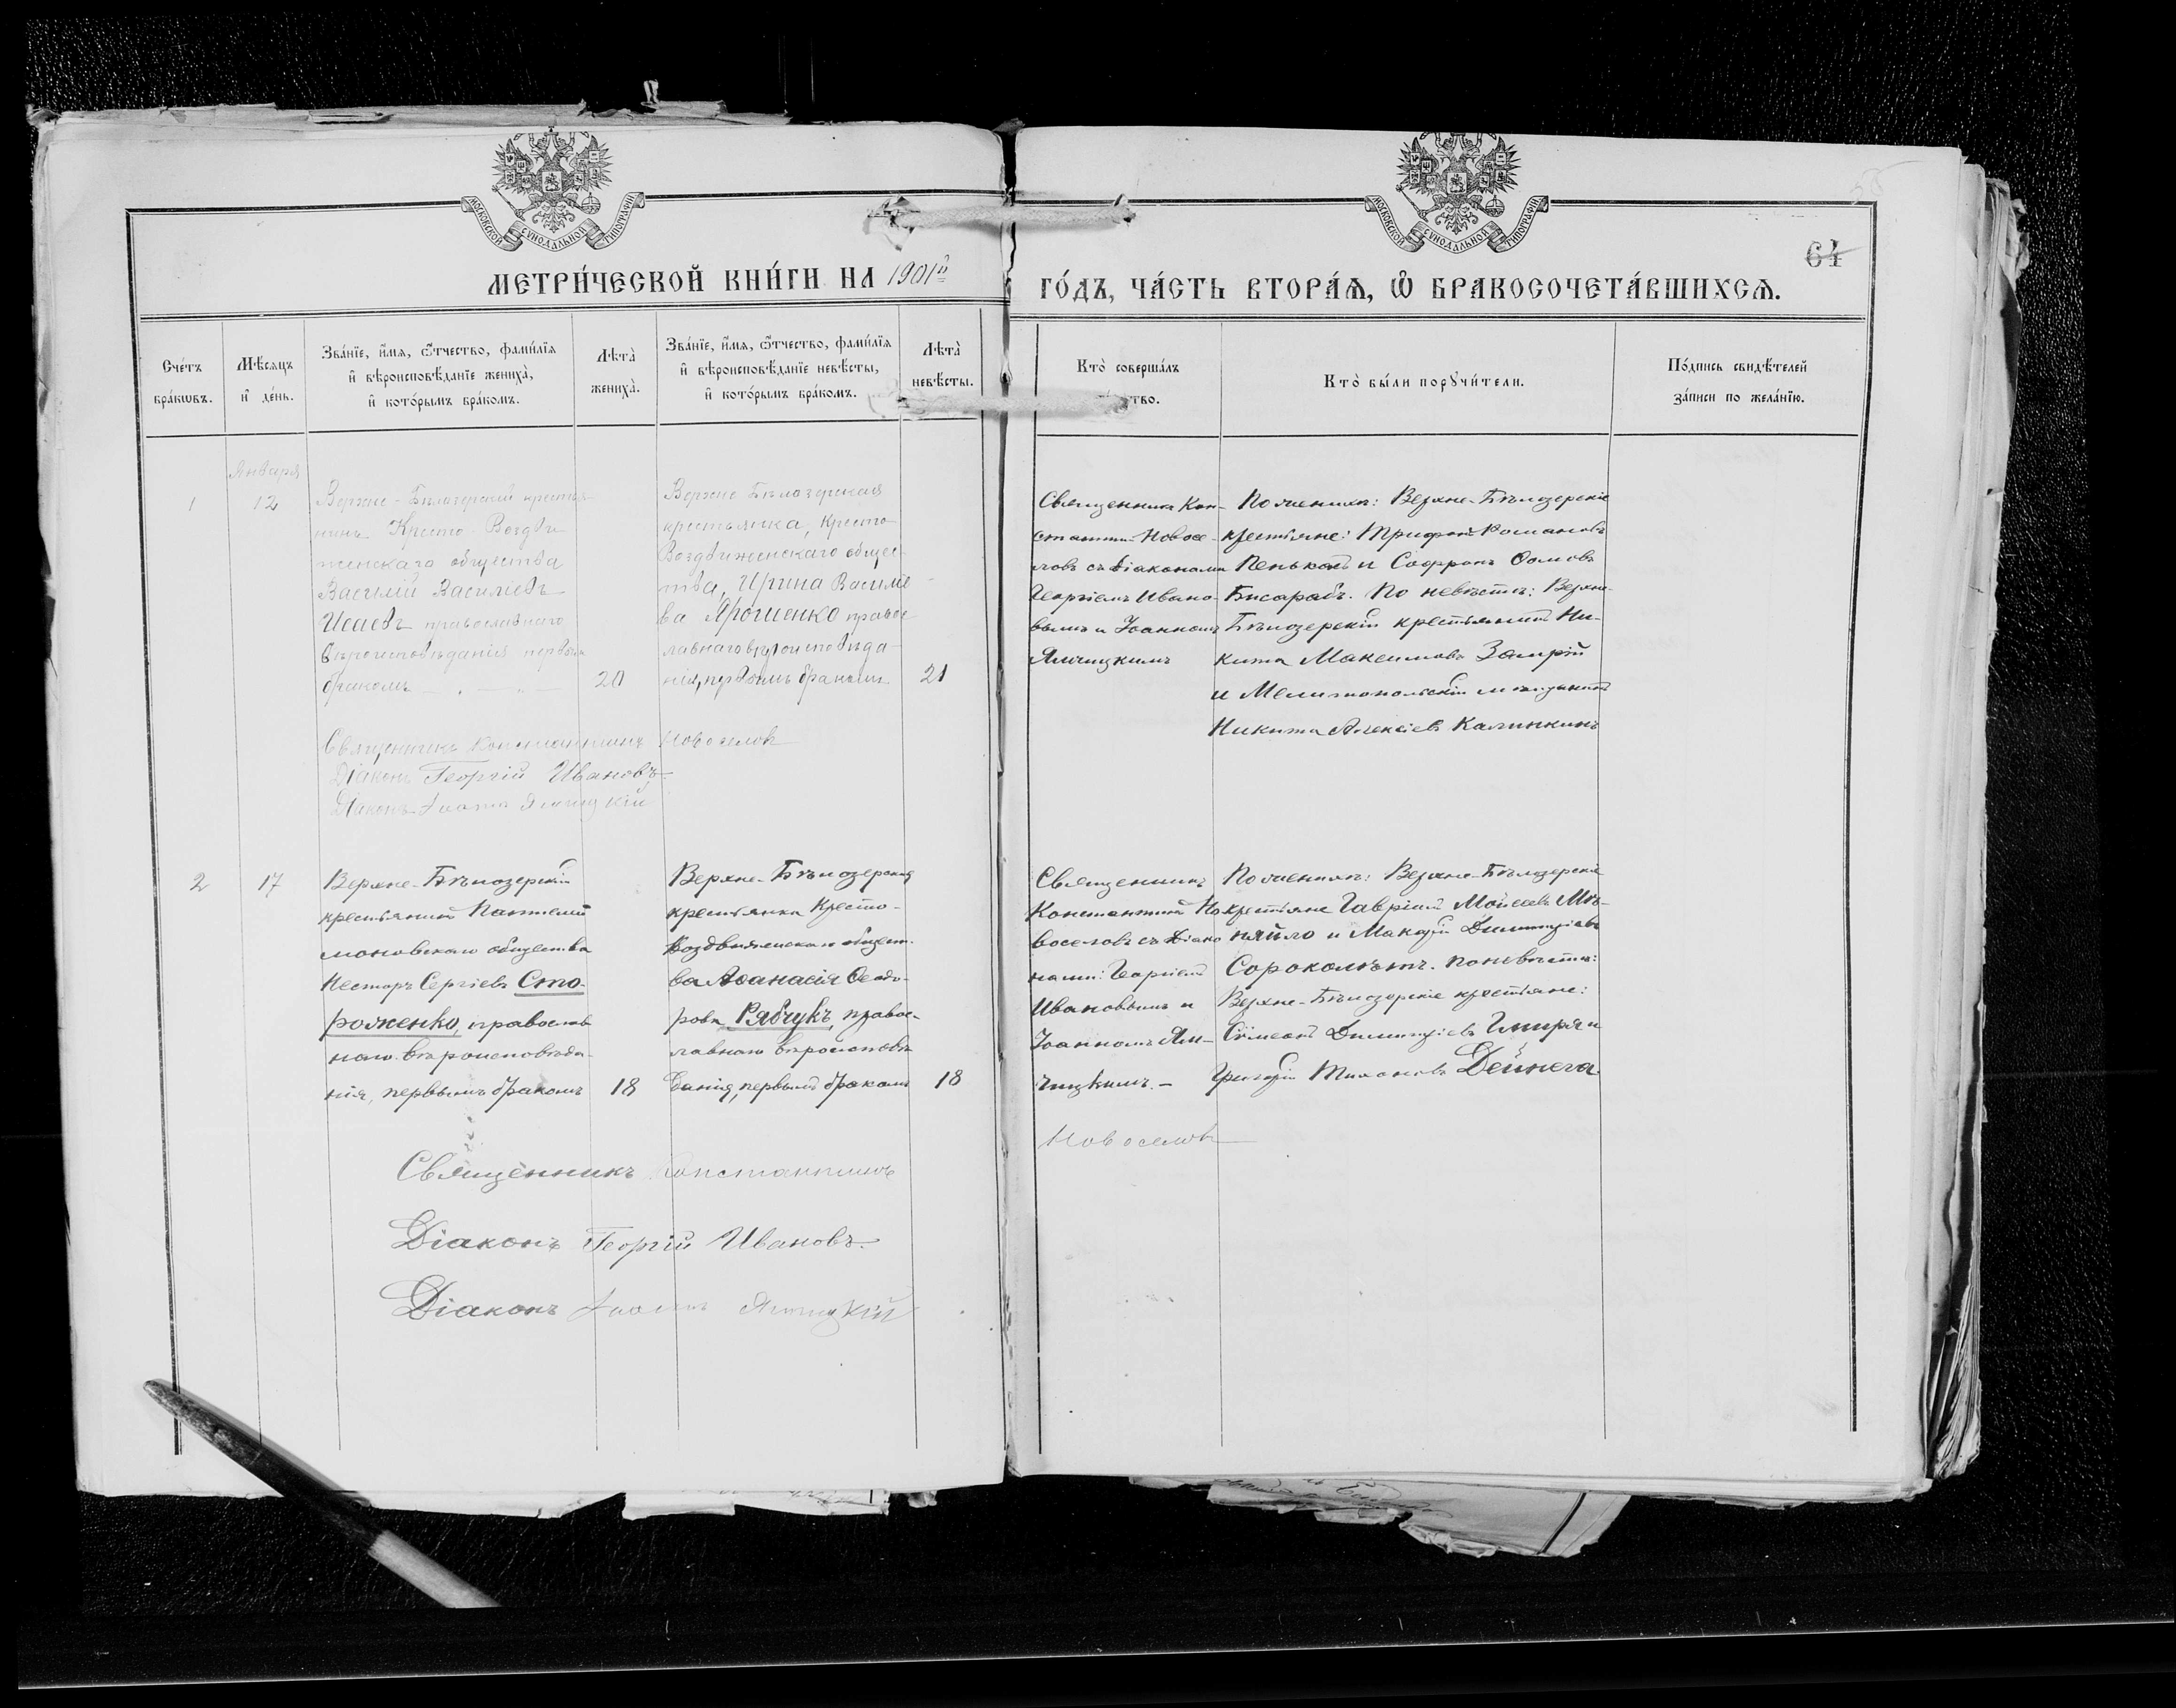 МОСКОВСКОЙ СУНОДАЛЬНОЙ ТИПОГРАФІИ
МОСКОВСКОЙ СУНОДАЛЬНОЙ ТИПОГРАФІИ
64
МЕТРИ́ЧЕСКОЙ КНИ́ГИ НА 1901й
ГО́ДЪ, ЧА́СТЬ ВТОРА́Я, Ѡ҆ БРАКОСОЧЕТА́ВШИХСЯ.
Сче́тъ бра́кѡвъ.
Мѣ́сяцъ и҆ де́нь.
Зва́нїе, и҆́мя, ѻ҆́тчество, фами́лїя
и҆ вѣроисповѣ́данїе жениха̀,
и҆ кото́рымъ бра́комъ.
Лѣта̀ жениха̀.
Зва́нїе, и҆́мя, ѻ҆́тчество, фами́лїя
и҆ вѣроисповѣ́данїе невѣ́сты,
и҆ кото́рымъ бра́комъ.
Лѣта̀ невѣ́сты.
Кто̀ соверша́лъ
тво.
Кто̀ бы́ли порꙋчи́тели.
По́дпись свидѣ́телей
за́писи по жела́нїю.
Января
1
12
Верхне-Бѣлозерскій крестья-
нинъ Кресто-Воздви-
женскаго общества
Василій Васильевъ
Исаевъ православнаго
вѣроисповѣданія первымъ
бракомъ
20
Верхне Бѣлозерская
крестьянка, Кресто-
Воздвиженскаго общес-
тва, Ирина Василье-
ва Ярошенко правос-
лавнаго вѣроисповѣда-
нія, первымъ бракомъ
21
Священникъ Кон-
стантин Новосе-
ловъ съ діаконами
Георгіемъ Ивано-
вымъ и Іоанномъ
Ямчицкимъ
По женихѣ: Верхне-Бѣлозерскіе
крестьяне: Трифонъ Романовъ
Пеньковъ и Софронъ Ѳомовъ
Бисарабъ. По невѣстѣ: Верхне-
Бѣлозерскій крестьянинъ Ни-
кита Максимовъ Замрій
и Мелитопольскій мѣщанинъ
Никита Алексіевъ Калинкинъ
Священникъ Константинъ Новоселовъ
Діаконъ Георгій Ивановъ.
Діаконъ Іоаннъ Ямчицкій
2
17
Верхне-Бѣлозерскій
крестьянинъ Пантелей
моновскаго общества
Несторъ Сергіевъ Сто-
роженко, православ
наго вѣроисповѣда-
нія, первымъ бракомъ
18
Верхне-Бѣлозерская
крестьянка Кресто-
Воздвиженскаго общест-
ва Аѳанасія Ѳеодо-
рова Рябчукъ, правос-
лавнаго вѣроисповѣ
данія, первымъ бракомъ
18
Священникъ
Константинъ Но
воселовъ съ Діако
нами: Георгіемъ
Ивановымъ и
Іоанномъ Ям-
чицкимъ. -
По женихѣ: Верхне-Бѣлозерскіе
крестьяне Гавріилъ Моѵсеевъ Мѣ-
няйло и Макарій Димитріевъ
Сороколѣтъ. По невѣстѣ:
Верхне-Бѣлозерскіе крестьяне:
Сѵмеонъ Димитріевъ Гмиря и
Григорій Тихоновъ Дейнега.
Священникъ Константинъ Новоселовъ
Діаконъ Георгій Ивановъ.
Діаконъ Іоаннъ Ямчицкій